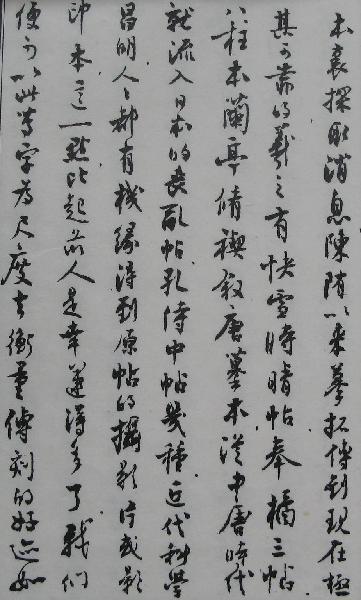 本裏探取消息陳隋以來摹拓傳到現在極
其可靠的羲之有快雪時晴帖奉橘三帖
八柱本蘭亭脩禊敘唐摹本從中唐時代
就流入日本的喪亂帖孔侍中帖幾種近代科學
昌明人々都有機緣得到原帖的攝影片或影
印本這一點比起前人是幸運得多了我們
便可以此等字為尺度去衡量傳刻的好迹如